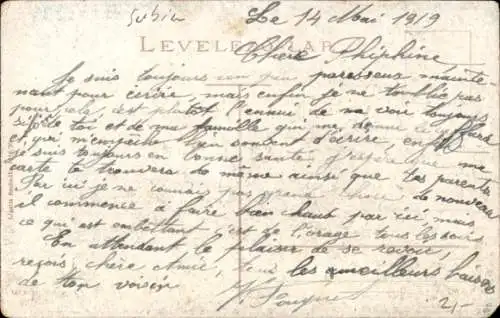 Le 14 Mai 1919
LEVELEZŐLAP
Chère Thiphine
Je suis toujours un peu paresseux mainte
nant pour écrire, mais enfin je ne t'oublie pas
pour cela, c'est plutôt l'ennui de ne voir toujours
de toi et de ma famille qui me donne
et qui m'empêche bien souvent d'écrire, enfin
je suis toujours en bonne santé, j'espère que ma
carte te trouvera de même ainsi que tes parents
Par ici je ne connais pas grand chose de nouveau
il commence à faire bien chaud par ici mais
ce qui est embêtant c'est de l'orage tous les soirs
En attendant le plaisir de se revoir,
reçois chère Amie, tous les meilleurs baisers
de ton voisin
Fouquet
2,-